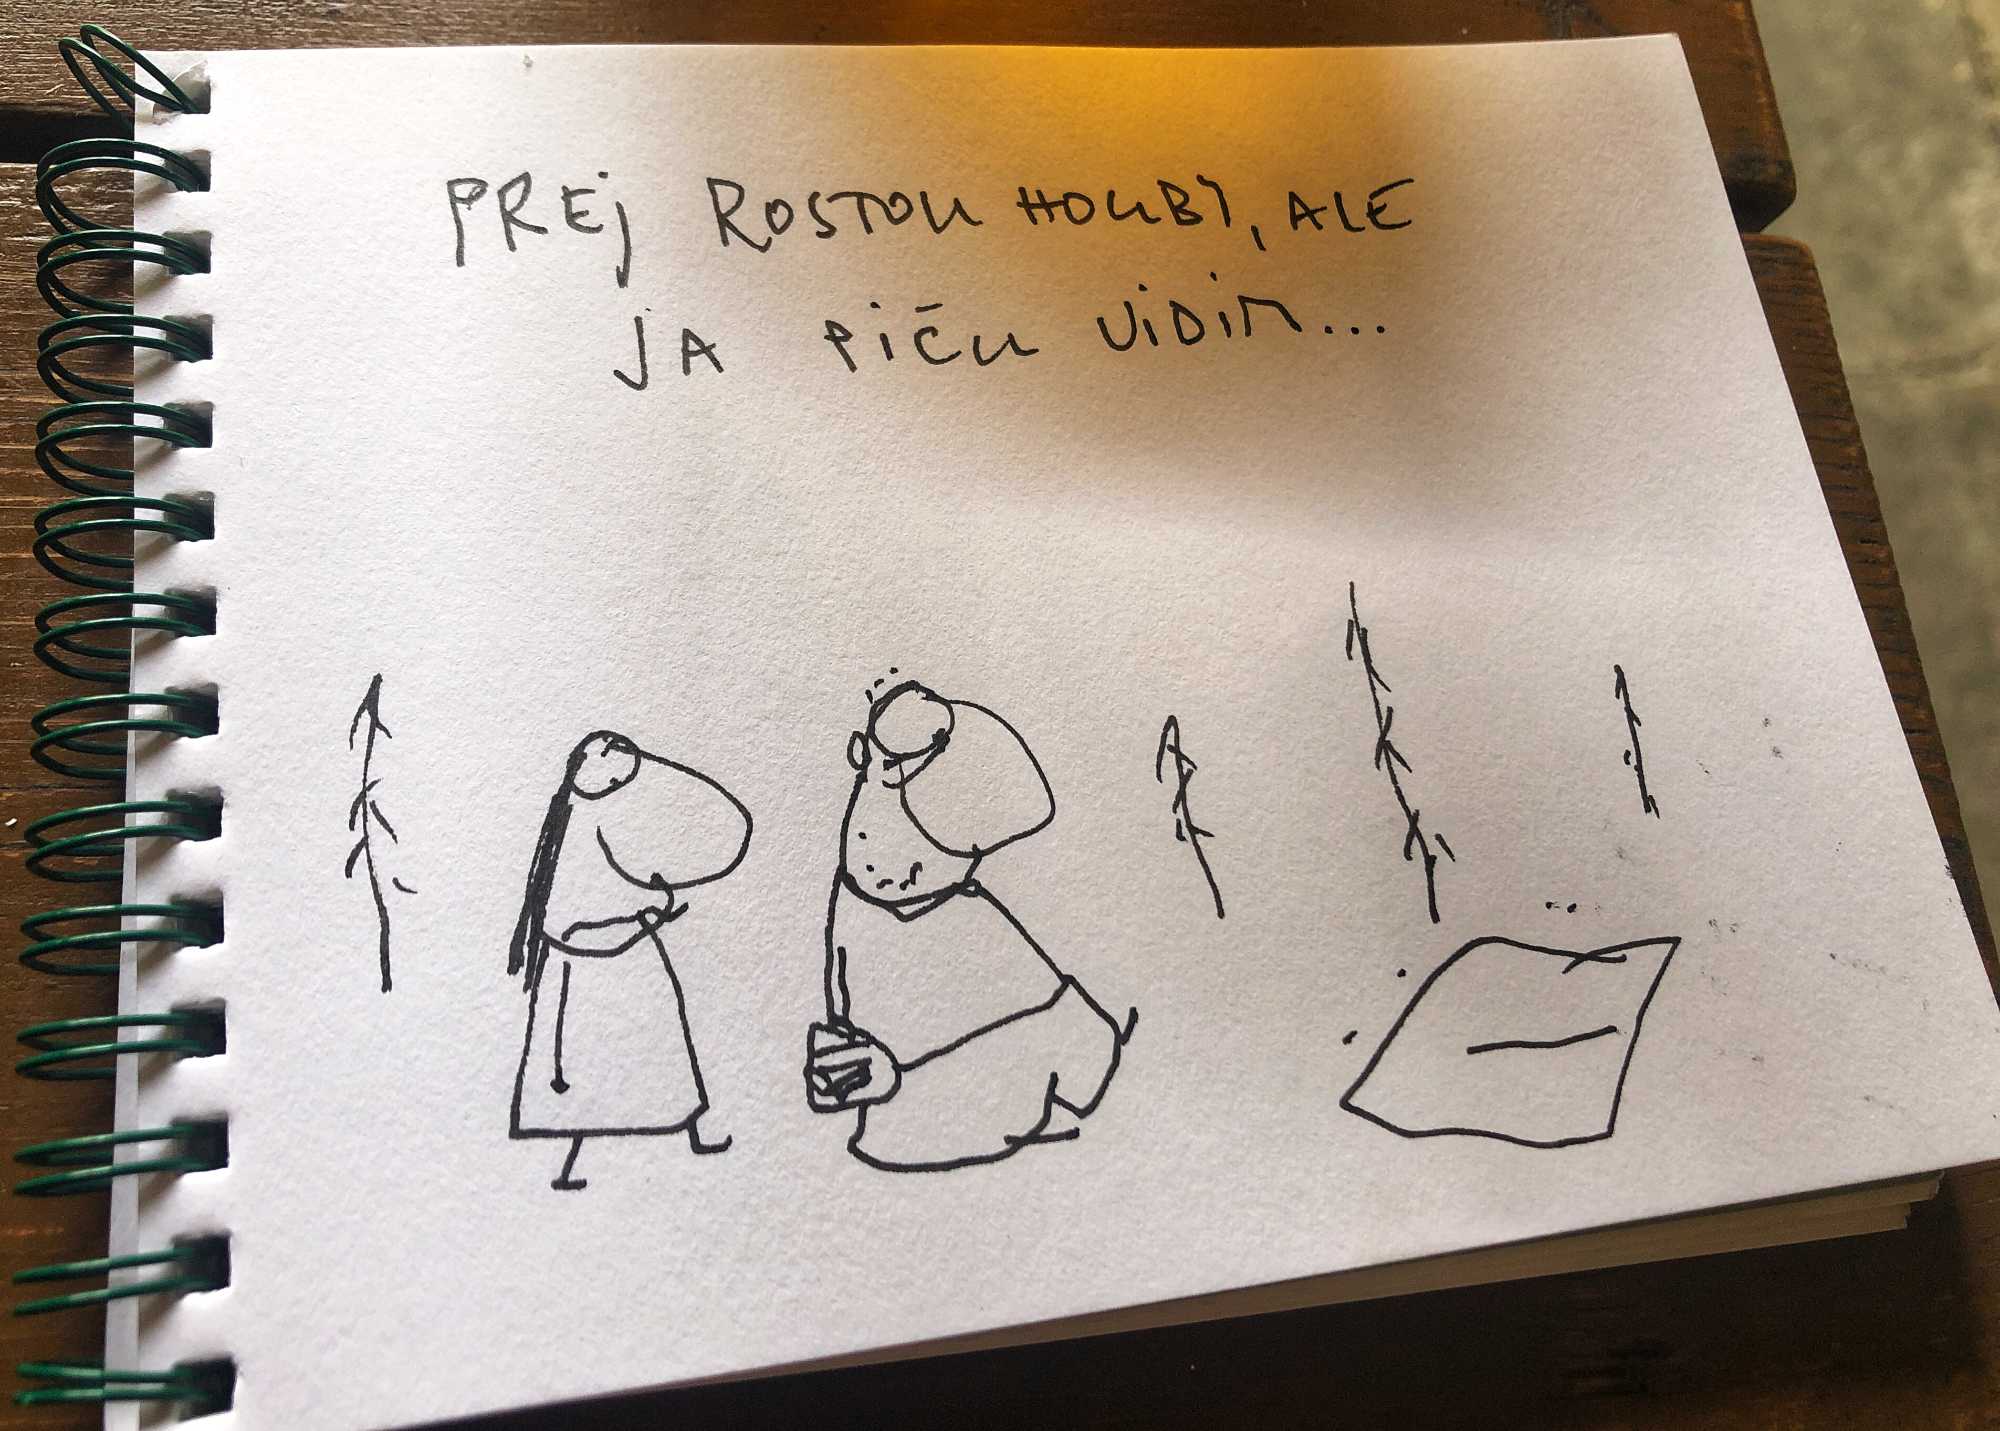 PREJ ROSTOU HOUBY, ALE
JA PIČU VIDIM...